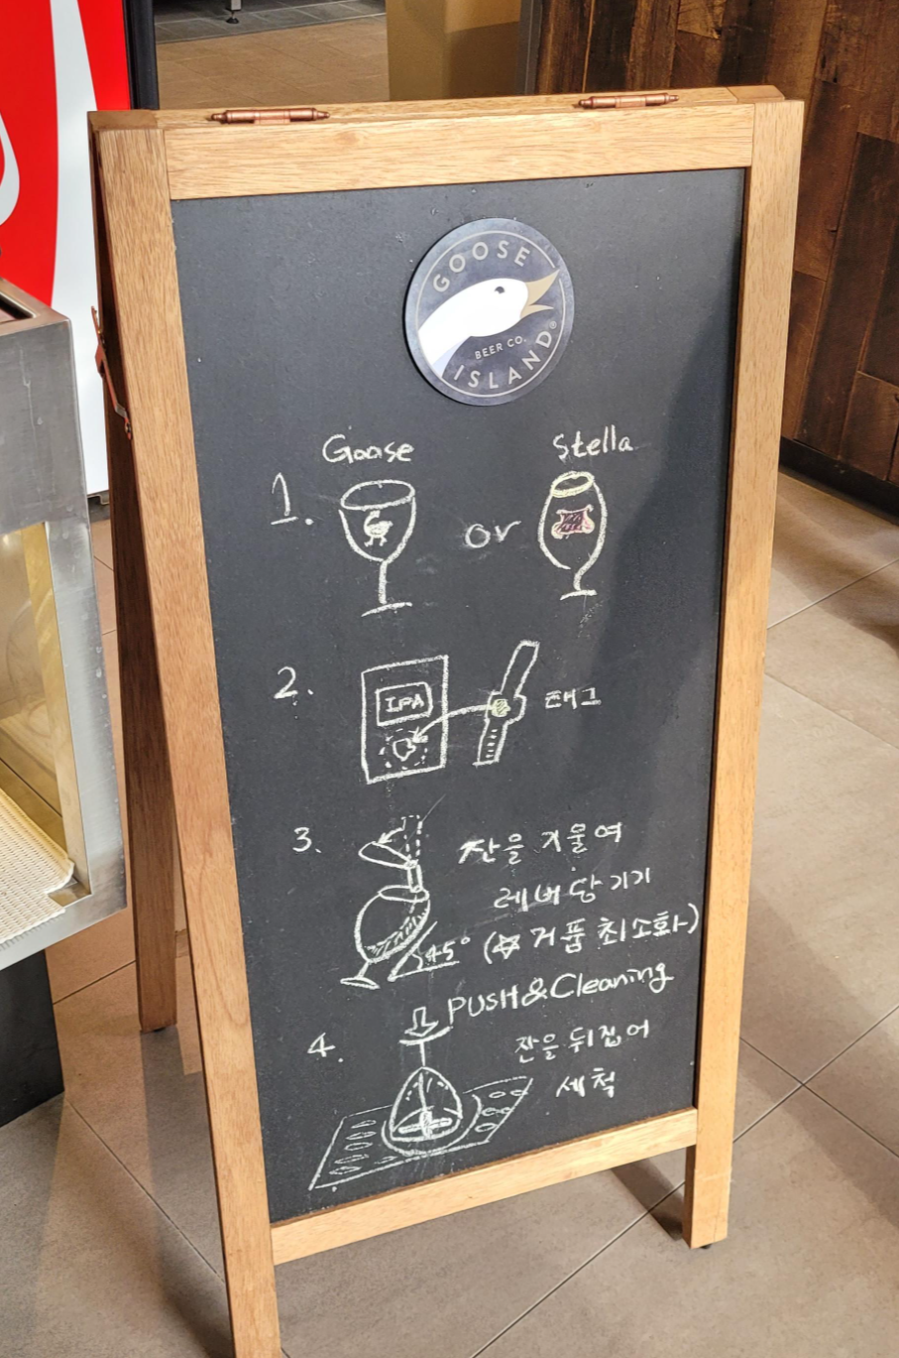 GOOSE
BEER CO.
ISLAND®
Goose
Stella
1.
or
2.
IPA
태그
3.
잔을 기울여
레버 당기기
45° (☆ 거품 최소화)
PUSH & Cleaning
4.
잔을 뒤집어
세척